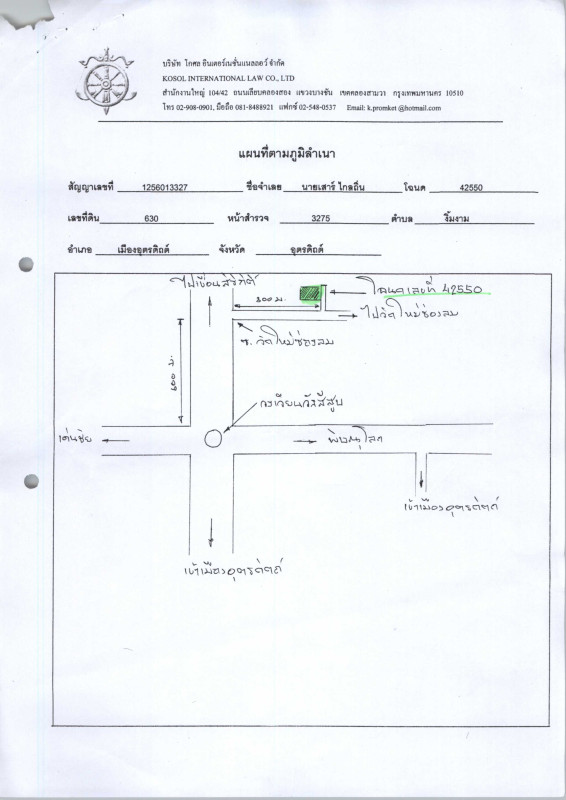 บริษัท โกศล อินเตอร์เนชั่นแนลลอว์ จำกัด
KOSOL INTERNATIONAL LAW CO., LTD
สำนักงานใหญ่ 104/42 ถนนเลียบคลองสอง แขวงบางชัน เขตคลองสามวา กรุงเทพมหานคร 10510
โทร 02-908-0901, มือถือ 081-8488921 แฟกซ์ 02-548-0537 Email: k.promket @hotmail.com
แผนที่ตามภูมิลำเนา
สัญญาเลขที่ 1256013327 ชื่อจำเลย นายเสาร์ ไกลถิ่น โฉนด 42550
เลขที่ดิน 630 หน้าสำรวจ 3275 ตำบล งิ้วงาม
อำเภอ เมืองอุตรดิตถ์ จังหวัด อุตรดิตถ์
ไปเขื่อนสิริกิติ์
โฉนดเลขที่ 42550
300 ม.
ไปวัดใหม่ช่องลม
ซ. วัดใหม่ช่องลม
600 ม.
วงเวียนวังสีสูบ
เด่นชัย
พิษณุโลก
เข้าเมืองอุตรดิตถ์
เข้าเมืองอุตรดิตถ์